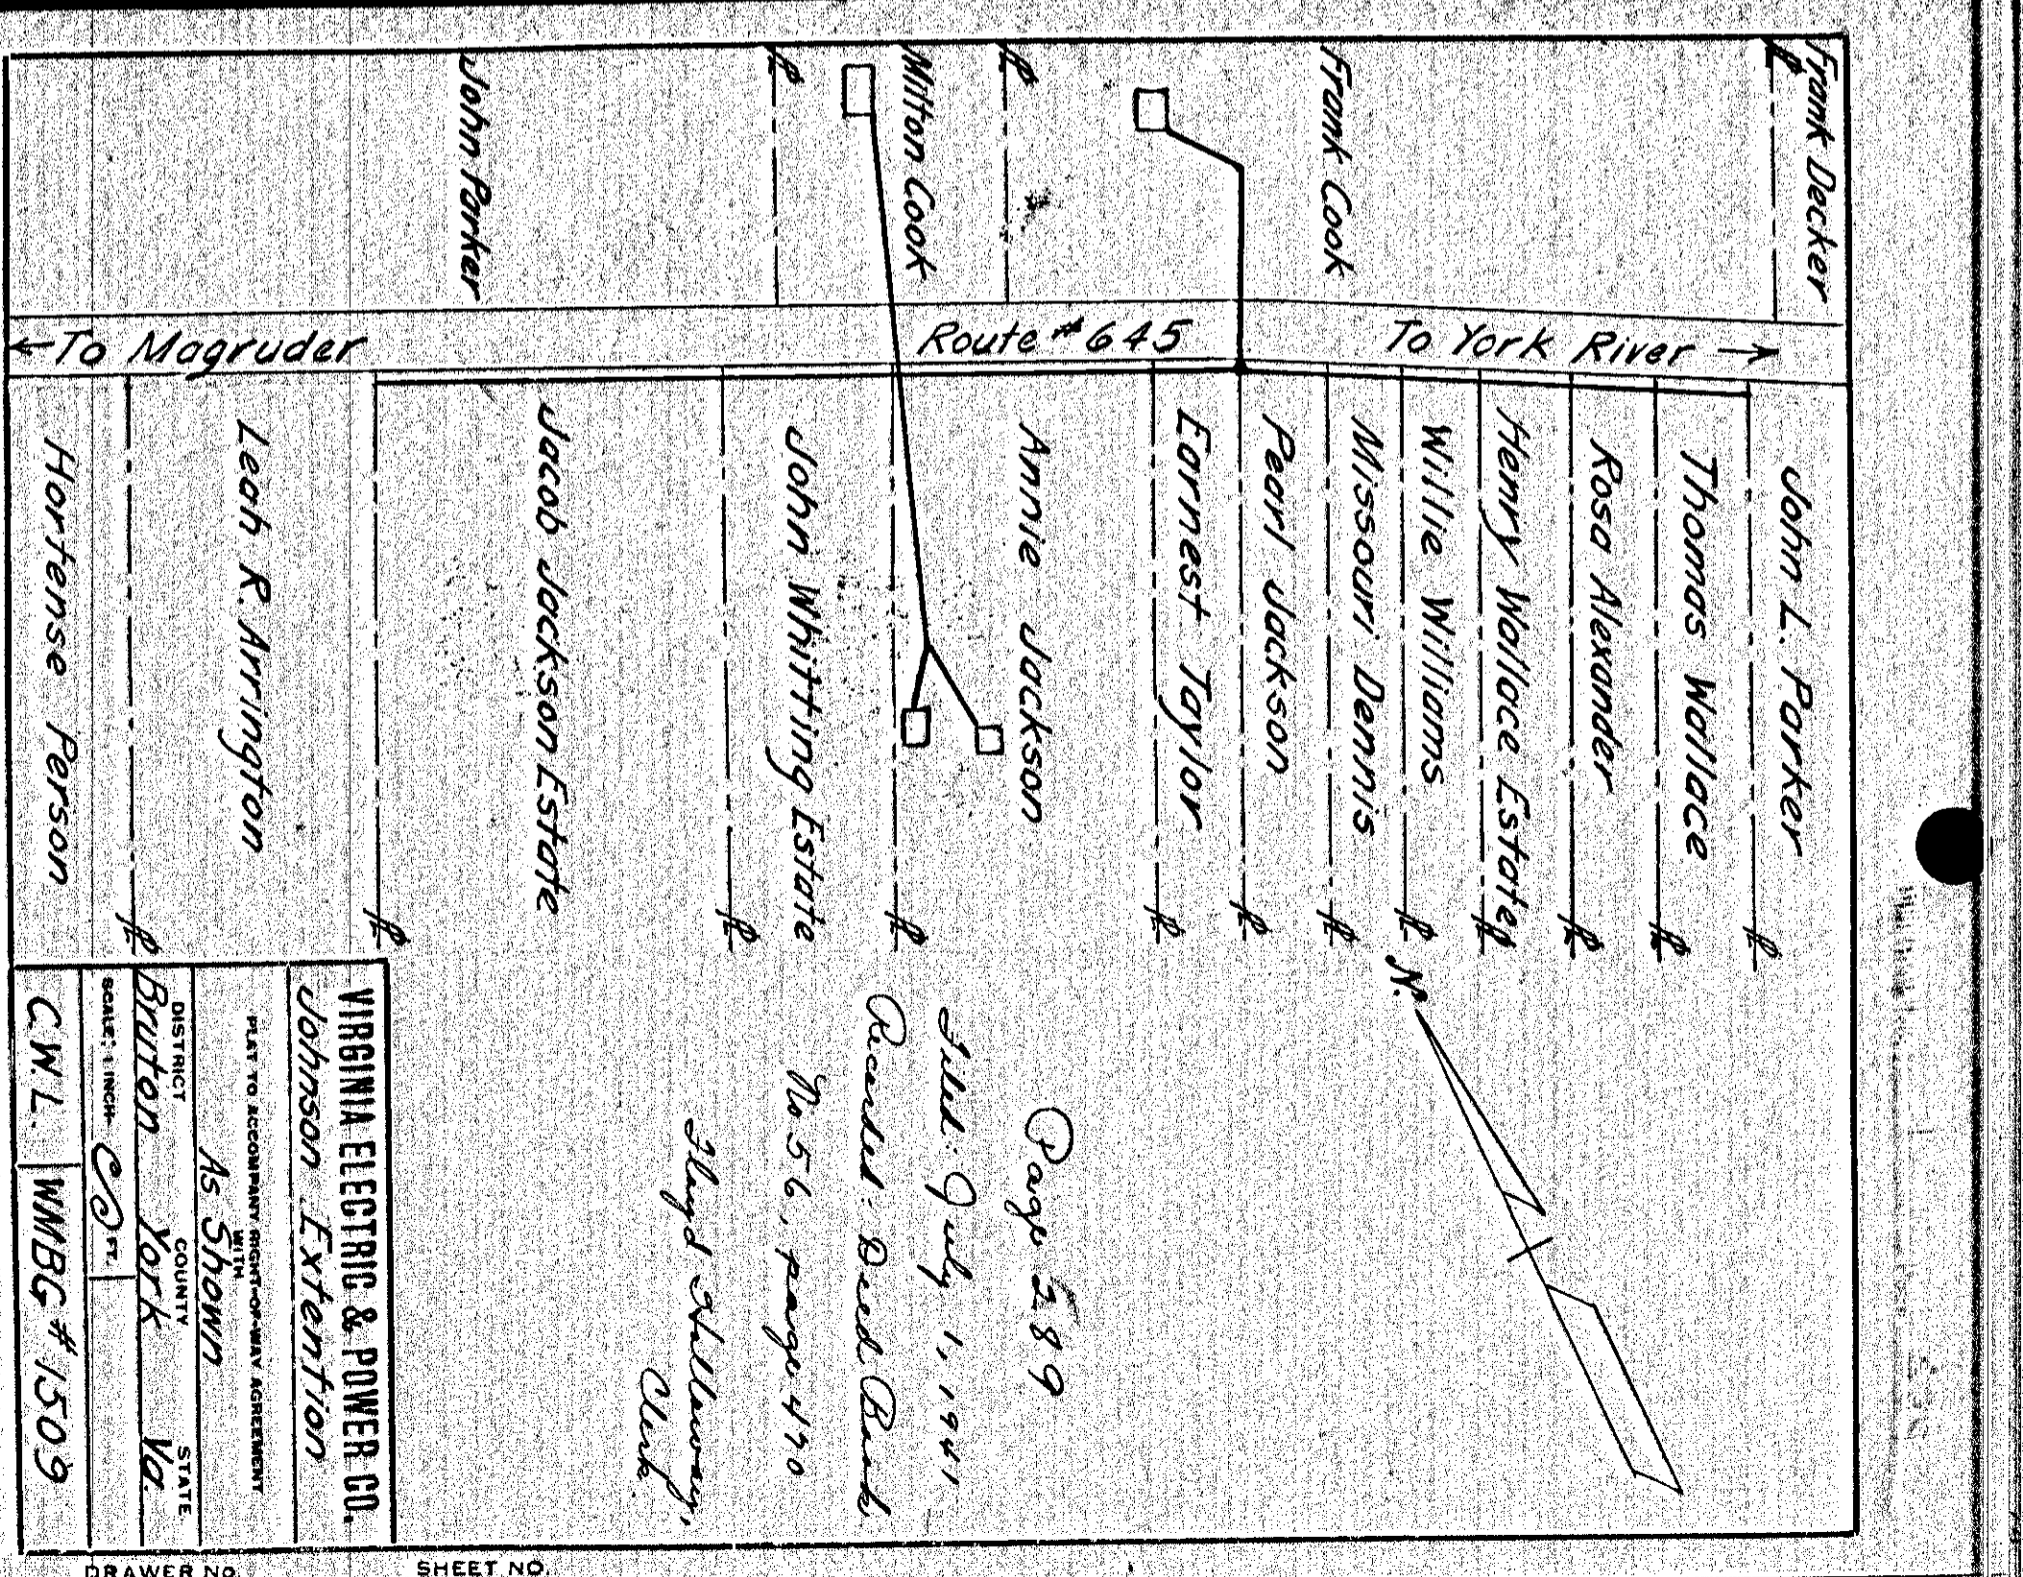 Frank Decker
Frank Cook
Milton Cook
John Parker
←To Magruder
Route #645
To York River →
John L. Parker
Thomas Wallace
Rosa Alexander
Henry Wallace Estate
Willie Williams
Missouri Dennis
Pearl Jackson
Earnest Taylor
Annie Jackson
John Whitting Estate
Jacob Jackson Estate
Leah R. Arrington
Hortense Person
N.
Page 289
Filed: July 1, 1941
Recorded: Deed Book
No 56, page 470
Floyd Holloway,
Clerk.
VIRGINIA ELECTRIC & POWER CO.
Johnson Extention
PLAT TO ACCOMPANY RIGHT-OF-WAY AGREEMENT
WITH
As Shown
DISTRICT COUNTY STATE
Bruton York Va.
SCALE: 1 INCH= FT.
C.W.L. WMBG #1509
DRAWER NO.
SHEET NO.